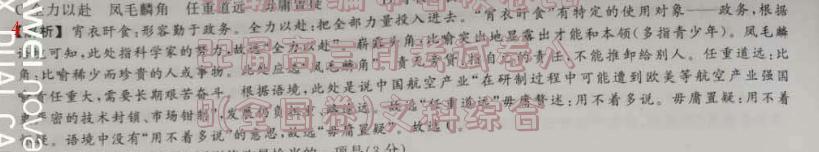 C.全力以赴 凤毛麟角 任重道远 毋庸置疑
4.【解析】宵衣旰食:形容勤于政务。全力以赴:把全部力量投入进去。“宵衣旰食”有特定的使用对象——政务,根据
可知,此处指科学家的努力,故选“全力以赴”。崭露头角:比喻突出地显露出才能和本领(多指青少年)。凤毛麟
角:比喻稀少而珍贵的人或事物。此处应选“凤毛麟角”。责无旁贷:自己的责任,不能推卸给别人。任重道远:比
责任重大,需要长期艰苦奋斗。根据语境,此处是说中国航空产业“在研制过程中可能遭到欧美等航空产业强国
密的技术封锁、市场钳制”,发展 故选“任重道远”。毋庸赘述:用不着多说。毋庸置疑:用不着
疑。语境中没有“用不着多说”的意思,故选“毋庸置疑”。故选
(全国卷)文科综合
项是(3分)